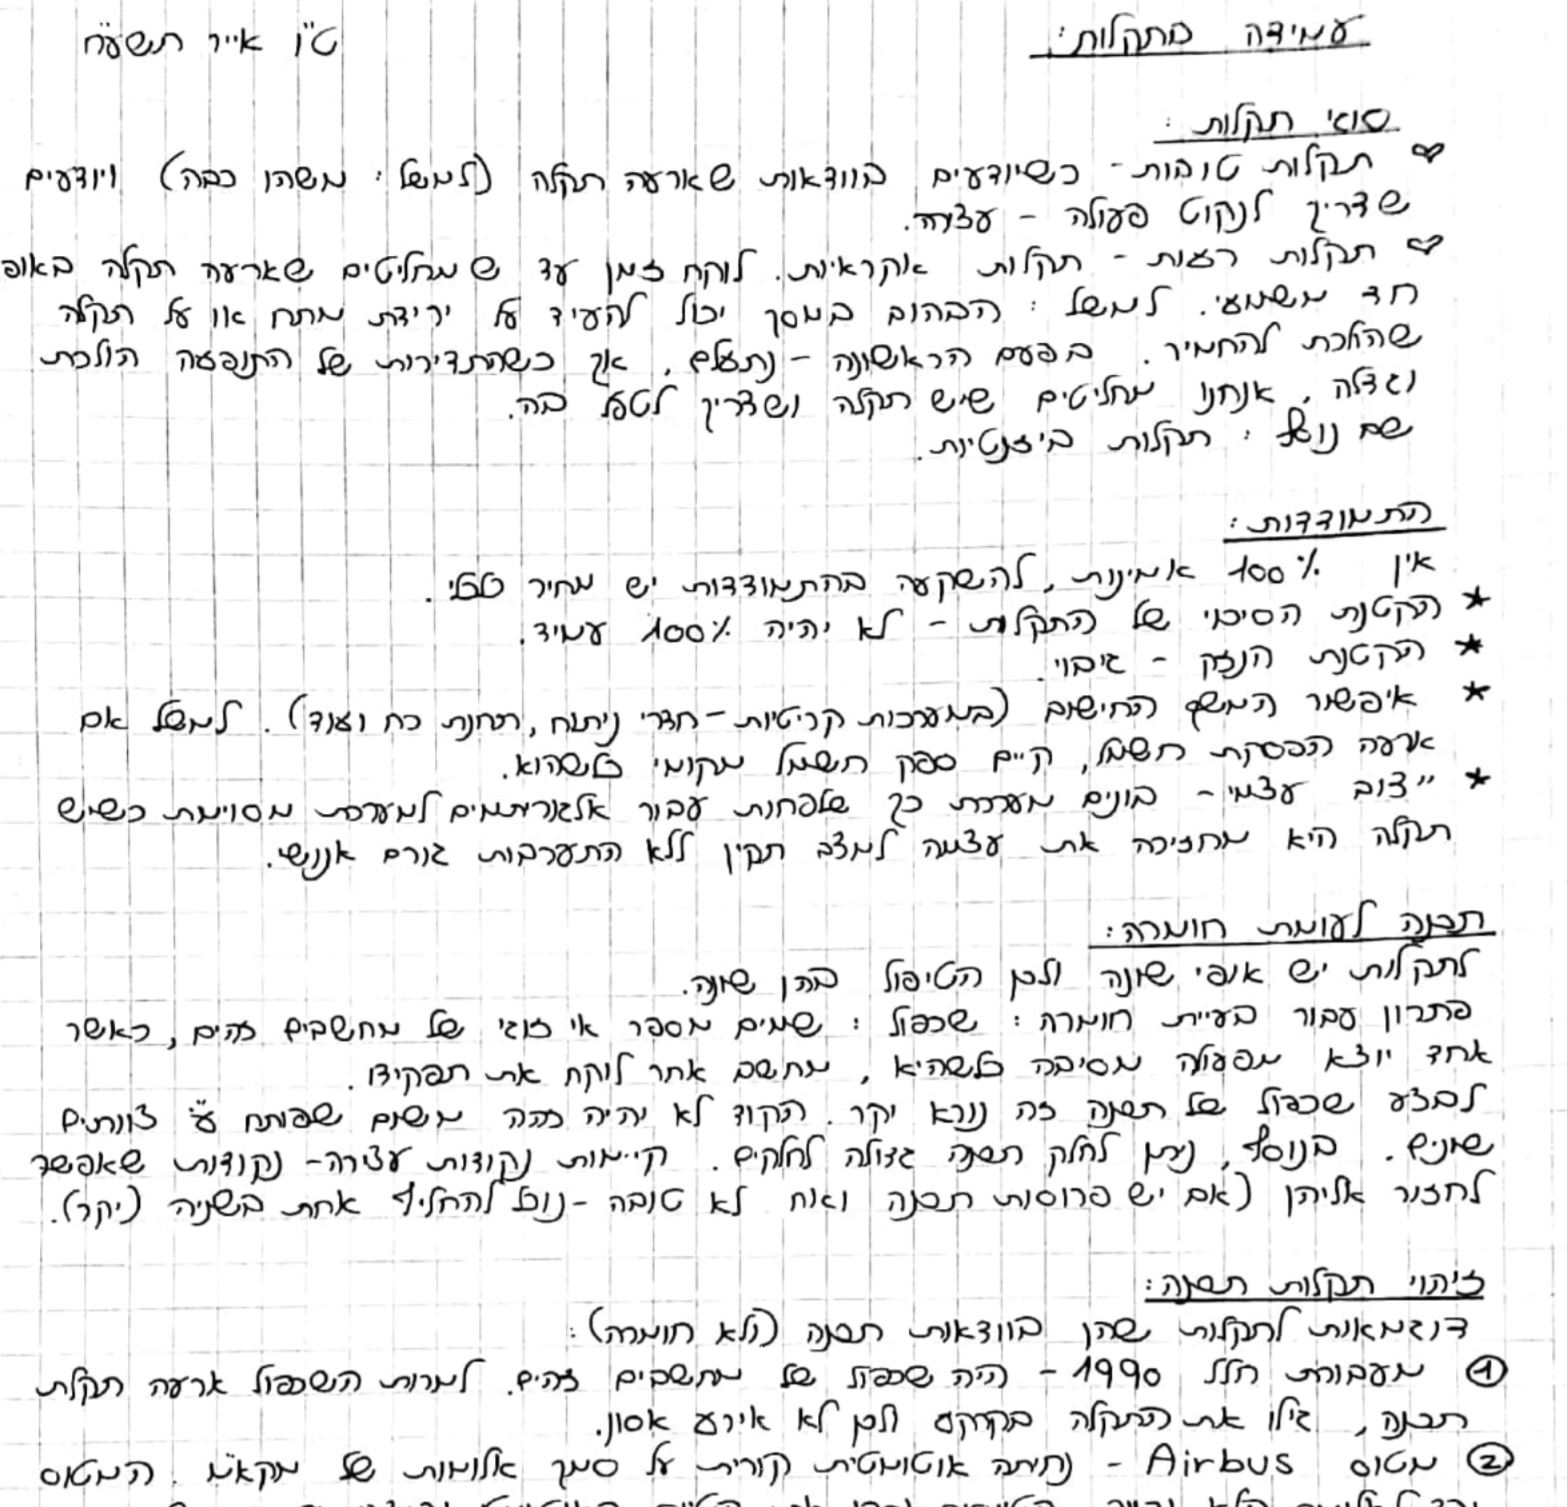 ט"ו אייר תשע"ח
עמידה בתקלות:
סוגי תקלות:
תקלות טובות - כשיודעים בוודאות שארעה תקלה (למשל: משהו כבה) ויודעים
שצריך לנקוט פעולה - עצירה.
תקלות רעות - תקלות אקראיות. לוקח זמן עד שמחליטים שארעה תקלה באופ
חד משמעי. למשל: הבהוב במסך יכול להעיד על ירידת מתח או על תקלה
שהולכת להחמיר. בפעם הראשונה - נתעלם, אך כשהתדירות של התופעה הולכת
וגדלה, אנחנו מחליטים שיש תקלה ושצריך לטפל בה.
שם נוסף: תקלות ביזנטיות.
התמודדות:
אין 100% אמינות, להשקעה בהתמודדות יש מחיר כלכלי.
★ הקטנת הסיכוי של התקלות - לא יהיה 100% עמיד.
★ הקטנת הנזק - גיבוי.
★ איפשור המשך החישוב (במערכות קריטיות - חדרי ניתוח, תחנת כח ועוד). למשל אם
ארעה הפסקת חשמל, קיים ספק חשמל מקומי כלשהוא.
★ ייצוב עצמי - בונים מערכת כך שלפחות עבור אלגוריתמים למערכת מסוימת כשיש
תקלה היא מחזירה את עצמה למצב תקין ללא התערבות גורם אנושי.
תכנה לעומת חומרה:
לתקלות יש אופי שונה ולכן הטיפול בהן שונה.
פתרון עבור בעיית חומרה: שכפול: שמים מספר אי זוגי של מחשבים זהים, כאשר
אחד יוצא מפעולה מסיבה כלשהיא, מחשב אחר לוקח את תפקידו.
לבצע שכפול של תכנה זה נורא יקר. הקוד לא יהיה זהה משום שפותח ע"י צוותים
שונים. בנוסף, ניתן לחלק תכנה גדולה לחלקים. קיימות נקודות עצירה - נקודות שאפשר
לחזור אליהן (אם יש פרוסות תכנה ואחת לא טובה - נוכל להחליף אחת בשניה (יקר).
זיהוי תקלות תכנה:
דוגמאות לתקלות שהן בוודאות תכנה (ולא חומרה):
① מעבורת חלל 1990 - היה שכפול של מחשבים זהים. למרות השכפול ארעה תקלת
תכנה, גילו את התקלה בקרקע ולכן לא אירע אסון.
② מטוס Airbus - נחיתה אוטומטית קורית על סמך אלומות של מקא"מ. המטוס